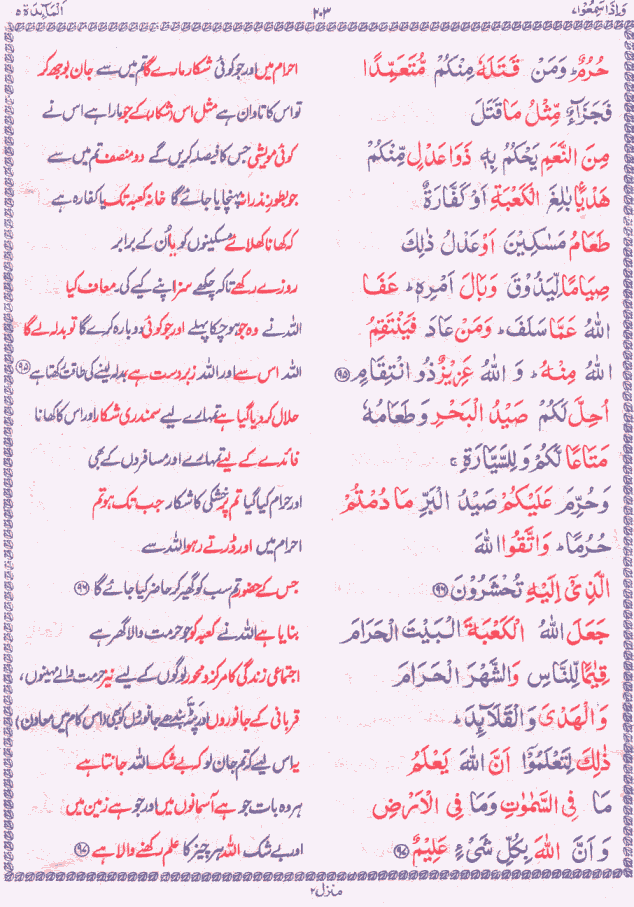 وَاِذَا سَمِعُوْا ۷ ۲۰۳ اَلْمَآئِدَة ۵
حُرُمٌ ؕ وَمَنْ قَتَلَهٗ مِنْكُمْ مُّتَعَمِّدًا احرام میں اور جو کوئی شکار مارے گا تم میں سے جان بوجھ کر
فَجَزَآءٌ مِّثْلُ مَا قَتَلَ تو اس کا تاوان ہے مثل اس (شکار) کے جو مارا ہے اس نے
مِنَ النَّعَمِ يَحْكُمُ بِهٖ ذَوَا عَدْلٍ مِّنْكُمْ کوئی مویشی جس کا فیصلہ کریں گے دو منصف تم میں سے
هَدْيًۢا بٰلِغَ الْكَعْبَةِ اَوْ كَفَّارَةٌ جو بطور نذرانہ پہنچایا جائے گا خانہ کعبہ تک یا کفارہ ہے
طَعَامُ مَسٰكِيْنَ اَوْ عَدْلُ ذٰلِكَ کہ کھانا کھلائے مسکینوں کو یا اُن کے برابر
صِيَامًا لِّيَذُوْقَ وَبَالَ اَمْرِهٖ ؕ عَفَا روزے رکھے تاکہ چکھے سزا اپنے کیے کی۔ معاف کیا
اللّٰهُ عَمَّا سَلَفَ ؕ وَمَنْ عَادَ فَيَنْتَقِمُ اللہ نے وہ جو ہو چکا پہلے اور جو کوئی دوبارہ کرے گا تو بدلہ لے گا
اللّٰهُ مِنْهُ ؕ وَ اللّٰهُ عَزِيْزٌ ذُو انْتِقَامٍ ۹۵ اللہ اس سے اور اللہ زبردست ہے بدلہ لینے کی طاقت رکھتا ہے ۹۵
اُحِلَّ لَكُمْ صَيْدُ الْبَحْرِ وَطَعَامُهٗ حلال کر دیا گیا ہے تمہارے لیے سمندری شکار اور اس کا کھانا
مَتَاعًا لَّكُمْ وَلِلسَّيَّارَةِ ۚ فائدے کے لیے تمہارے اور مسافروں کے بھی
وَحُرِّمَ عَلَيْكُمْ صَيْدُ الْبَرِّ مَا دُمْتُمْ اور حرام کیا گیا تم پر خشکی کا شکار جب تک ہو تم
حُرُمًا ؕ وَاتَّقُوا اللّٰهَ احرام میں اور ڈرتے رہو اللہ سے
الَّذِيْٓ اِلَيْهِ تُحْشَرُوْنَ ۹۶ جس کے حضور تم سب کو گھیر کر حاضر کیا جائے گا ۹۶
جَعَلَ اللّٰهُ الْكَعْبَةَ الْبَيْتَ الْحَرَامَ بنایا ہے اللہ نے کعبہ کو جو حرمت والا گھر ہے
قِيٰمًا لِّلنَّاسِ وَالشَّهْرَ الْحَرَامَ اجتماعی زندگی کا مرکز و محور لوگوں کے لیے نیز حرمت والے مہینوں،
وَالْهَدْىَ وَالْقَلَآئِدَ ؕ قربانی کے جانوروں اور پٹہ بندھے جانوروں کو بھی (اس کام میں معاون)
ذٰلِكَ لِتَعْلَمُوْٓا اَنَّ اللّٰهَ يَعْلَمُ یہ اس لیے کہ تم جان لو کہ بے شک اللہ جانتا ہے
مَا فِى السَّمٰوٰتِ وَمَا فِى الْاَرْضِ ہر وہ بات جو ہے آسمانوں میں اور جو ہے زمین میں
وَ اَنَّ اللّٰهَ بِكُلِّ شَىْءٍ عَلِيْمٌ ۹۷ اور بے شک اللہ ہر چیز کا علم رکھنے والا ہے ۹۷
منزل ۲